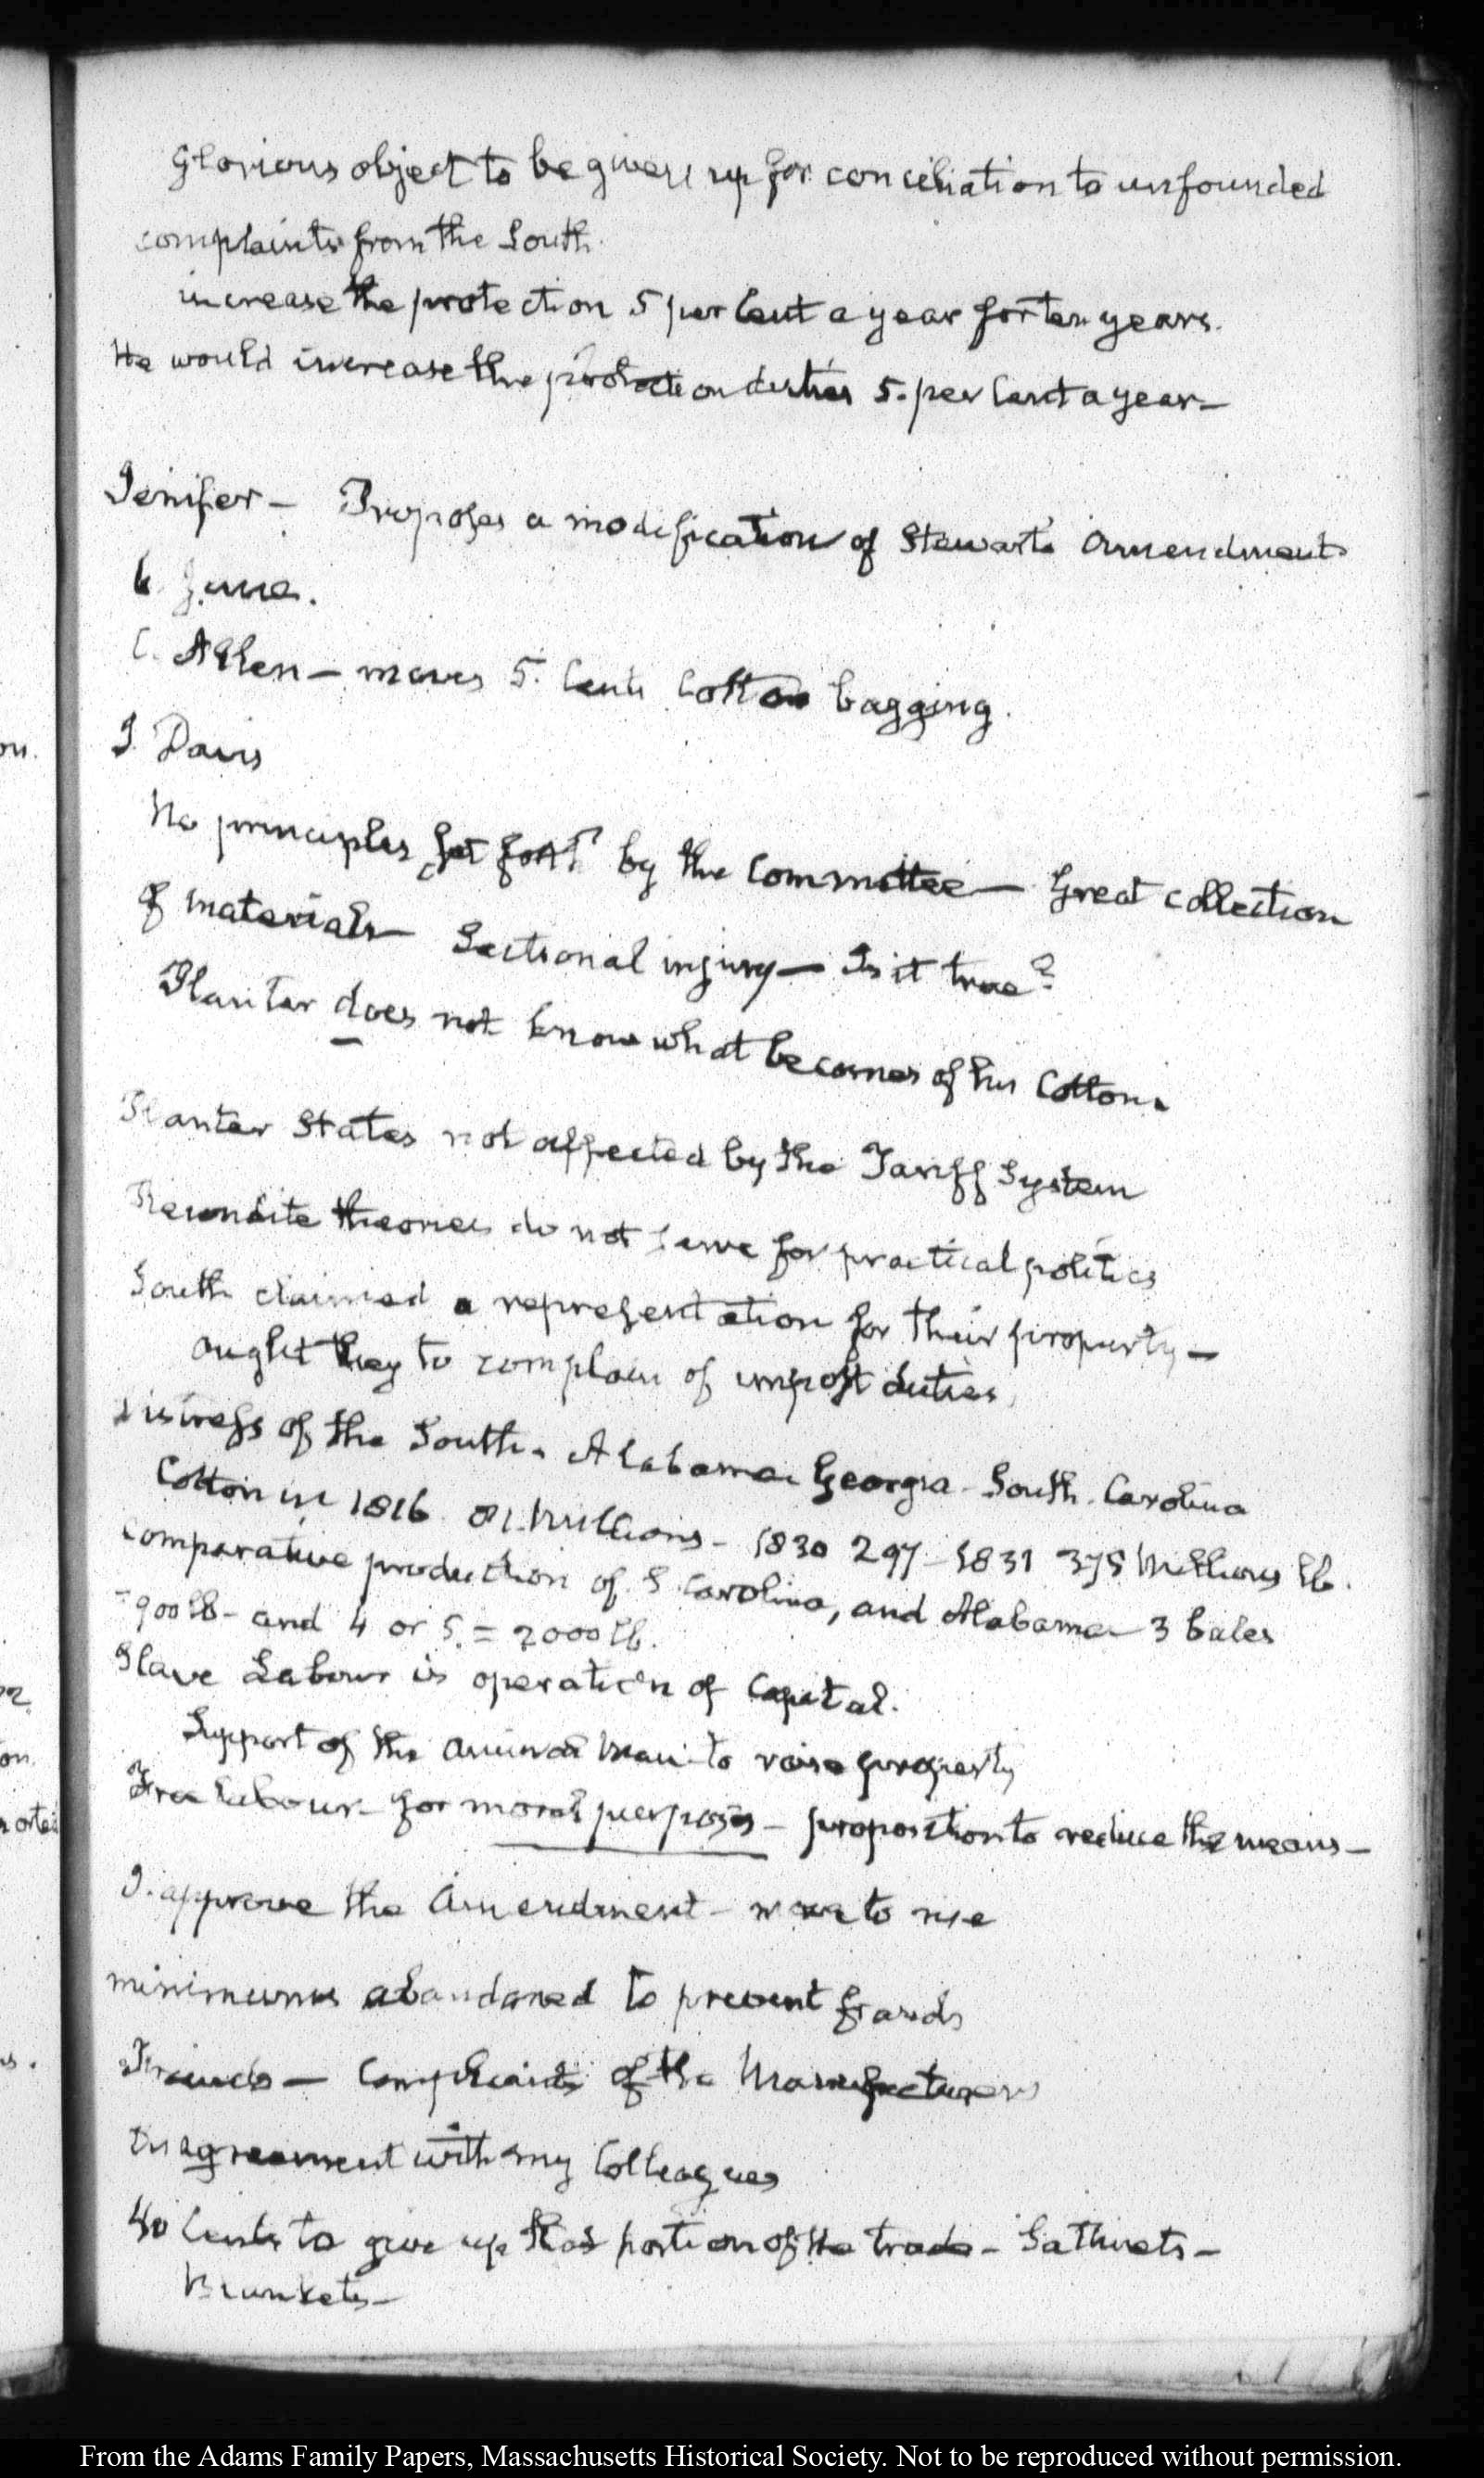 Glorious object to be given up for conciliation to unfounded
complaints from the South.
increase the protection 5 per Cent a year for ten years.
He would increase the protection duties 5. per Cent a year—
Jenifer— Proposes a modification of Stewart's Amendment
6. June.
C. Allen— moves 5. Cents Cotton bagging.
J. Davis
No principles set forth by the Committee— Great collection
of materials— Sectional injury— Is it true?
Planter does not know what becomes of his Cotton.
Planter States not affected by the Tariff System
Recondite theories do not serve for practical politics
South claimed a representation for their property—
ought they to complain of impost duties
distress of the South. Alabama Georgia. South. Carolina
Cotton in 1816 81. Millions— 1830 297— 1831 375 Millions lb.
Comparative production of S. Carolina, and Alabama— 3 bales
=900 lb— and 4 or 5. = 2000 lb.
Slave Labour is operation of Capital.
Support of the animal man to raise property
Free Labour— for moral purposes— proposition to reduce the means—
I. approve the Amendment— to rise
minimums abandoned to prevent frauds
Frauds— Complaints of the Manufacturers
Disagreement with my Colleagues
40 Cents to give up that portion of the trade— Satinets—
Blankets—
on.
on.
s.
From the Adams Family Papers, Massachusetts Historical Society. Not to be reproduced without permission.